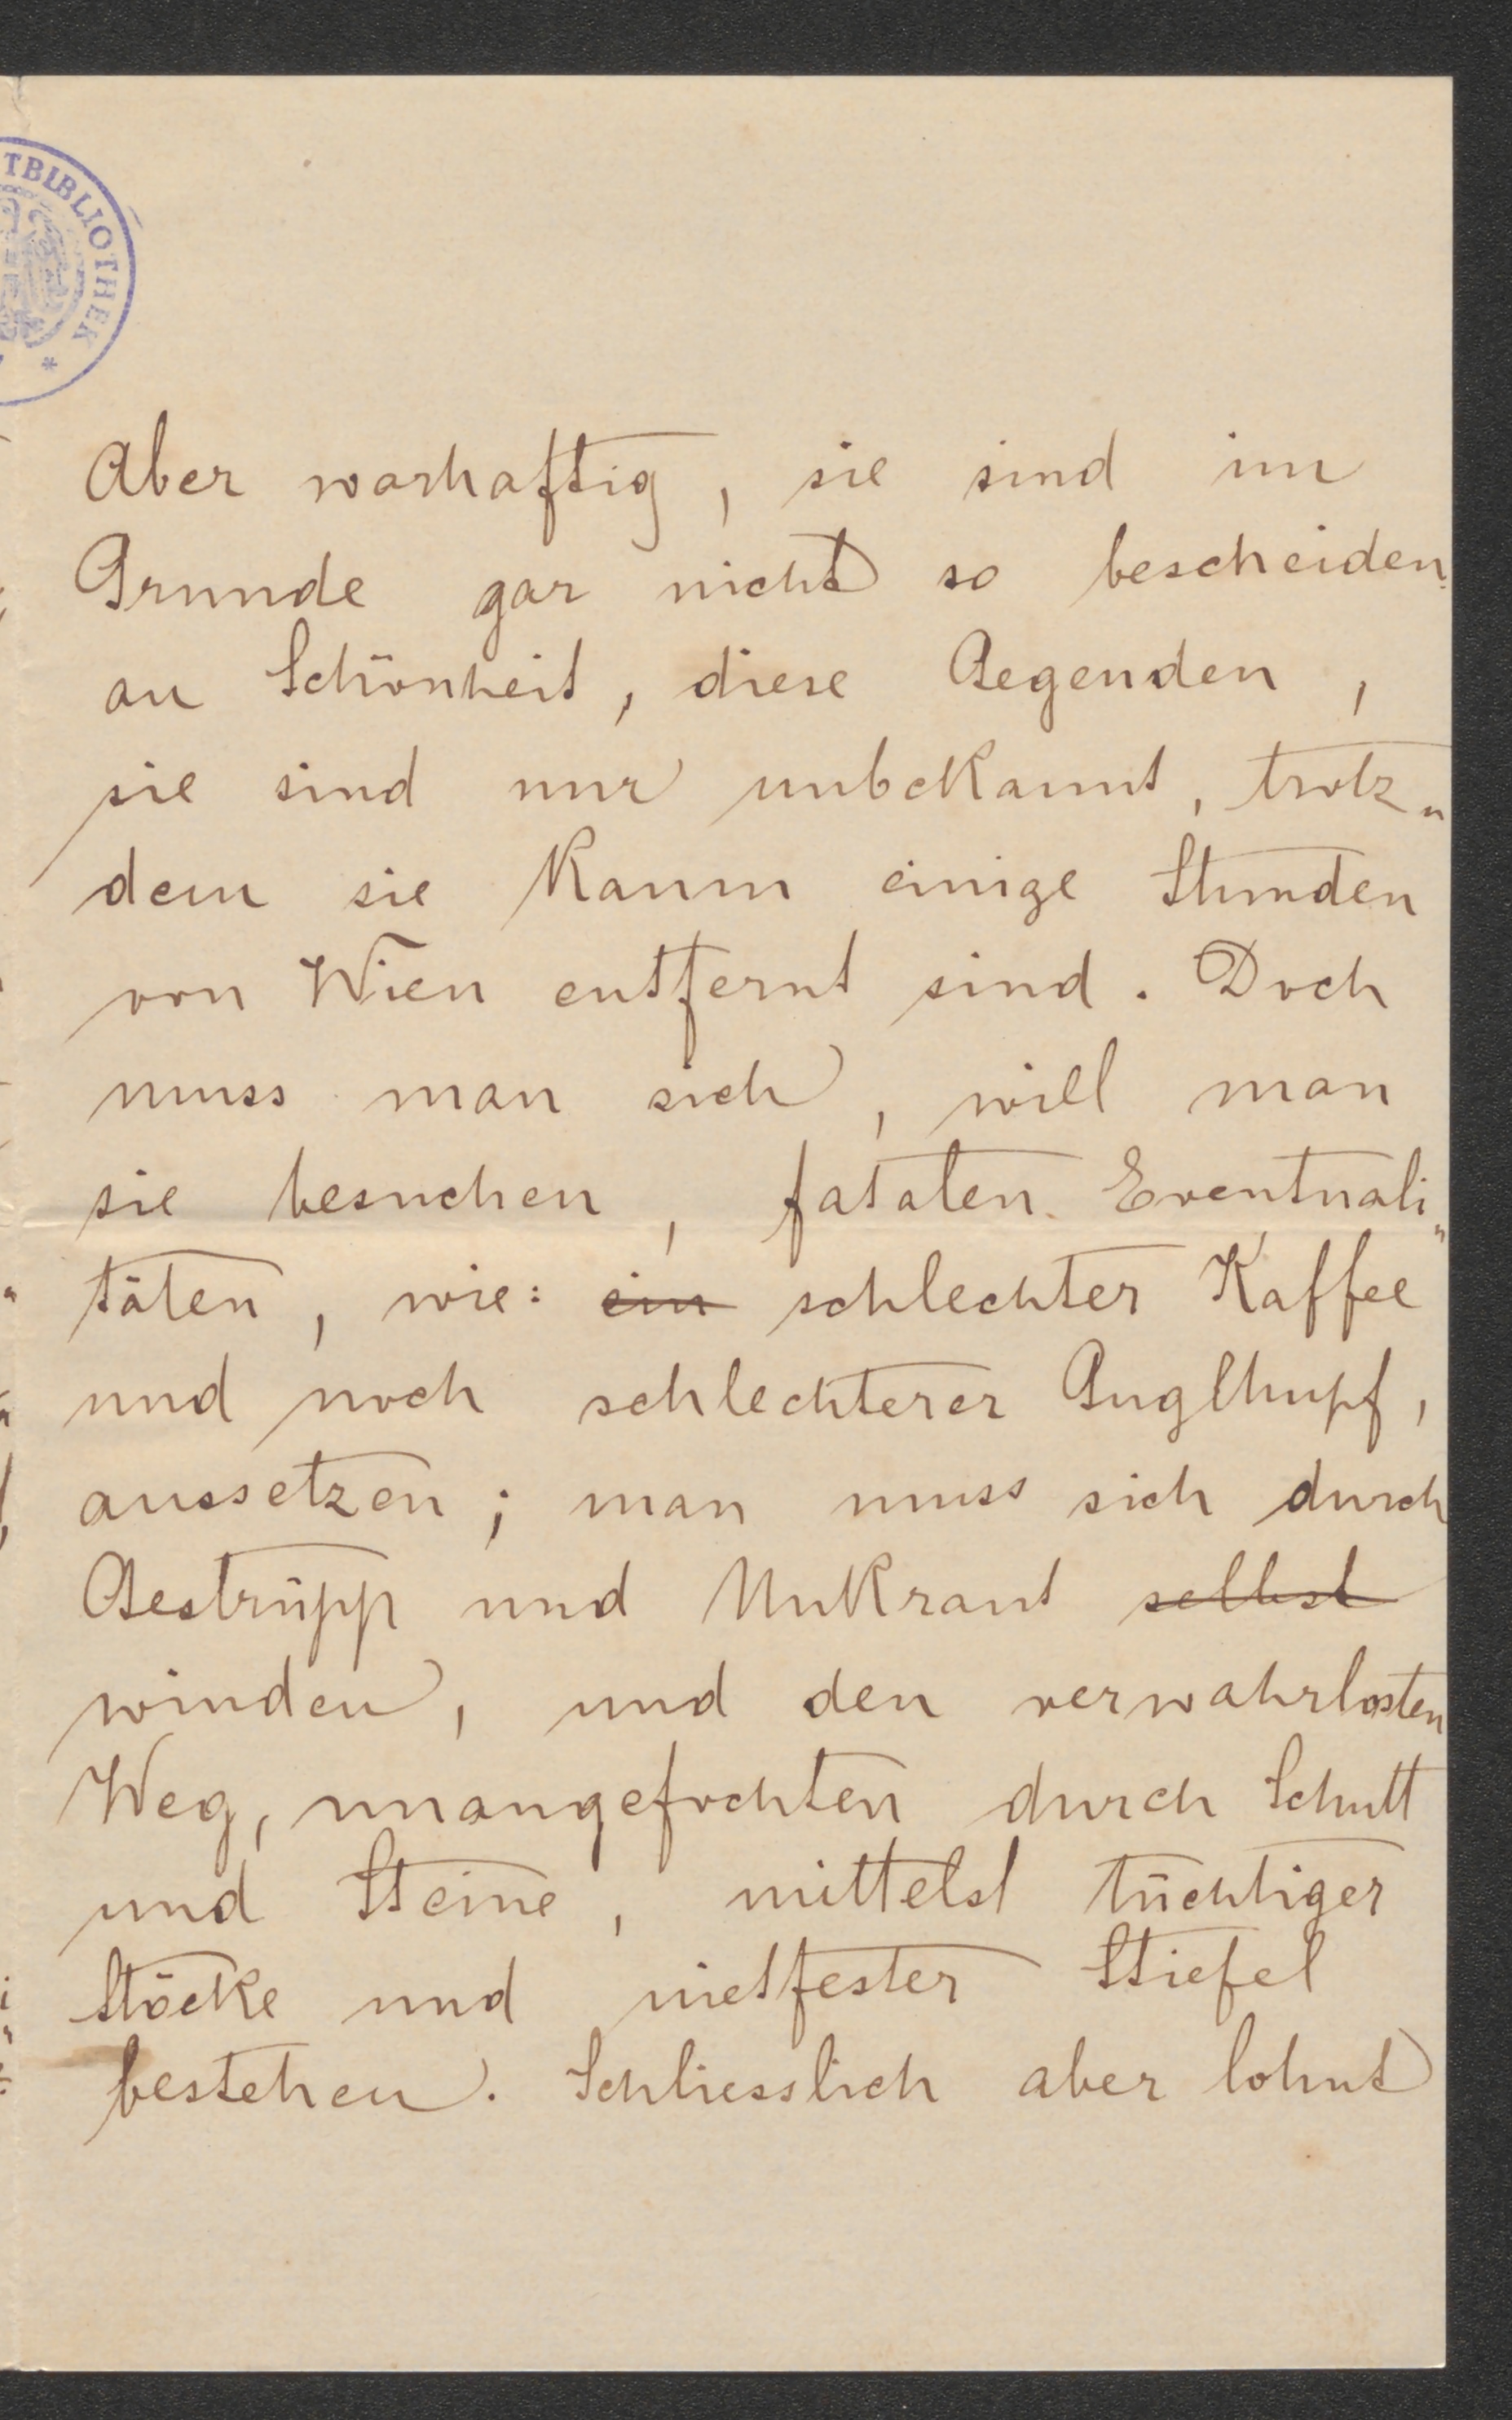 TBIBLIOTHEK *
Aber warhaftig, sie sind im
Grunde gar nicht so bescheiden
an Schönheit, diese Gegenden,
sie sind nur unbekannt, trotz„
dem sie kaum einige Stunden
von Wien entfernt sind. Doch
muss man sich, will man
sie besuchen, fatalen Eventuali„
täten, wie: ein schlechter Kaffee
und noch schlechterer Guglhupf,
aussetzen; man muss sich durch
Gestrüpp und Unkraut selbst
winden, und den verwahrlosten
Weg, unangefochten durch Schutt
und Steine, mittelst tüchtiger
Stöcke und nietfester Stiefel
bestehen. Schliesslich aber lohnt